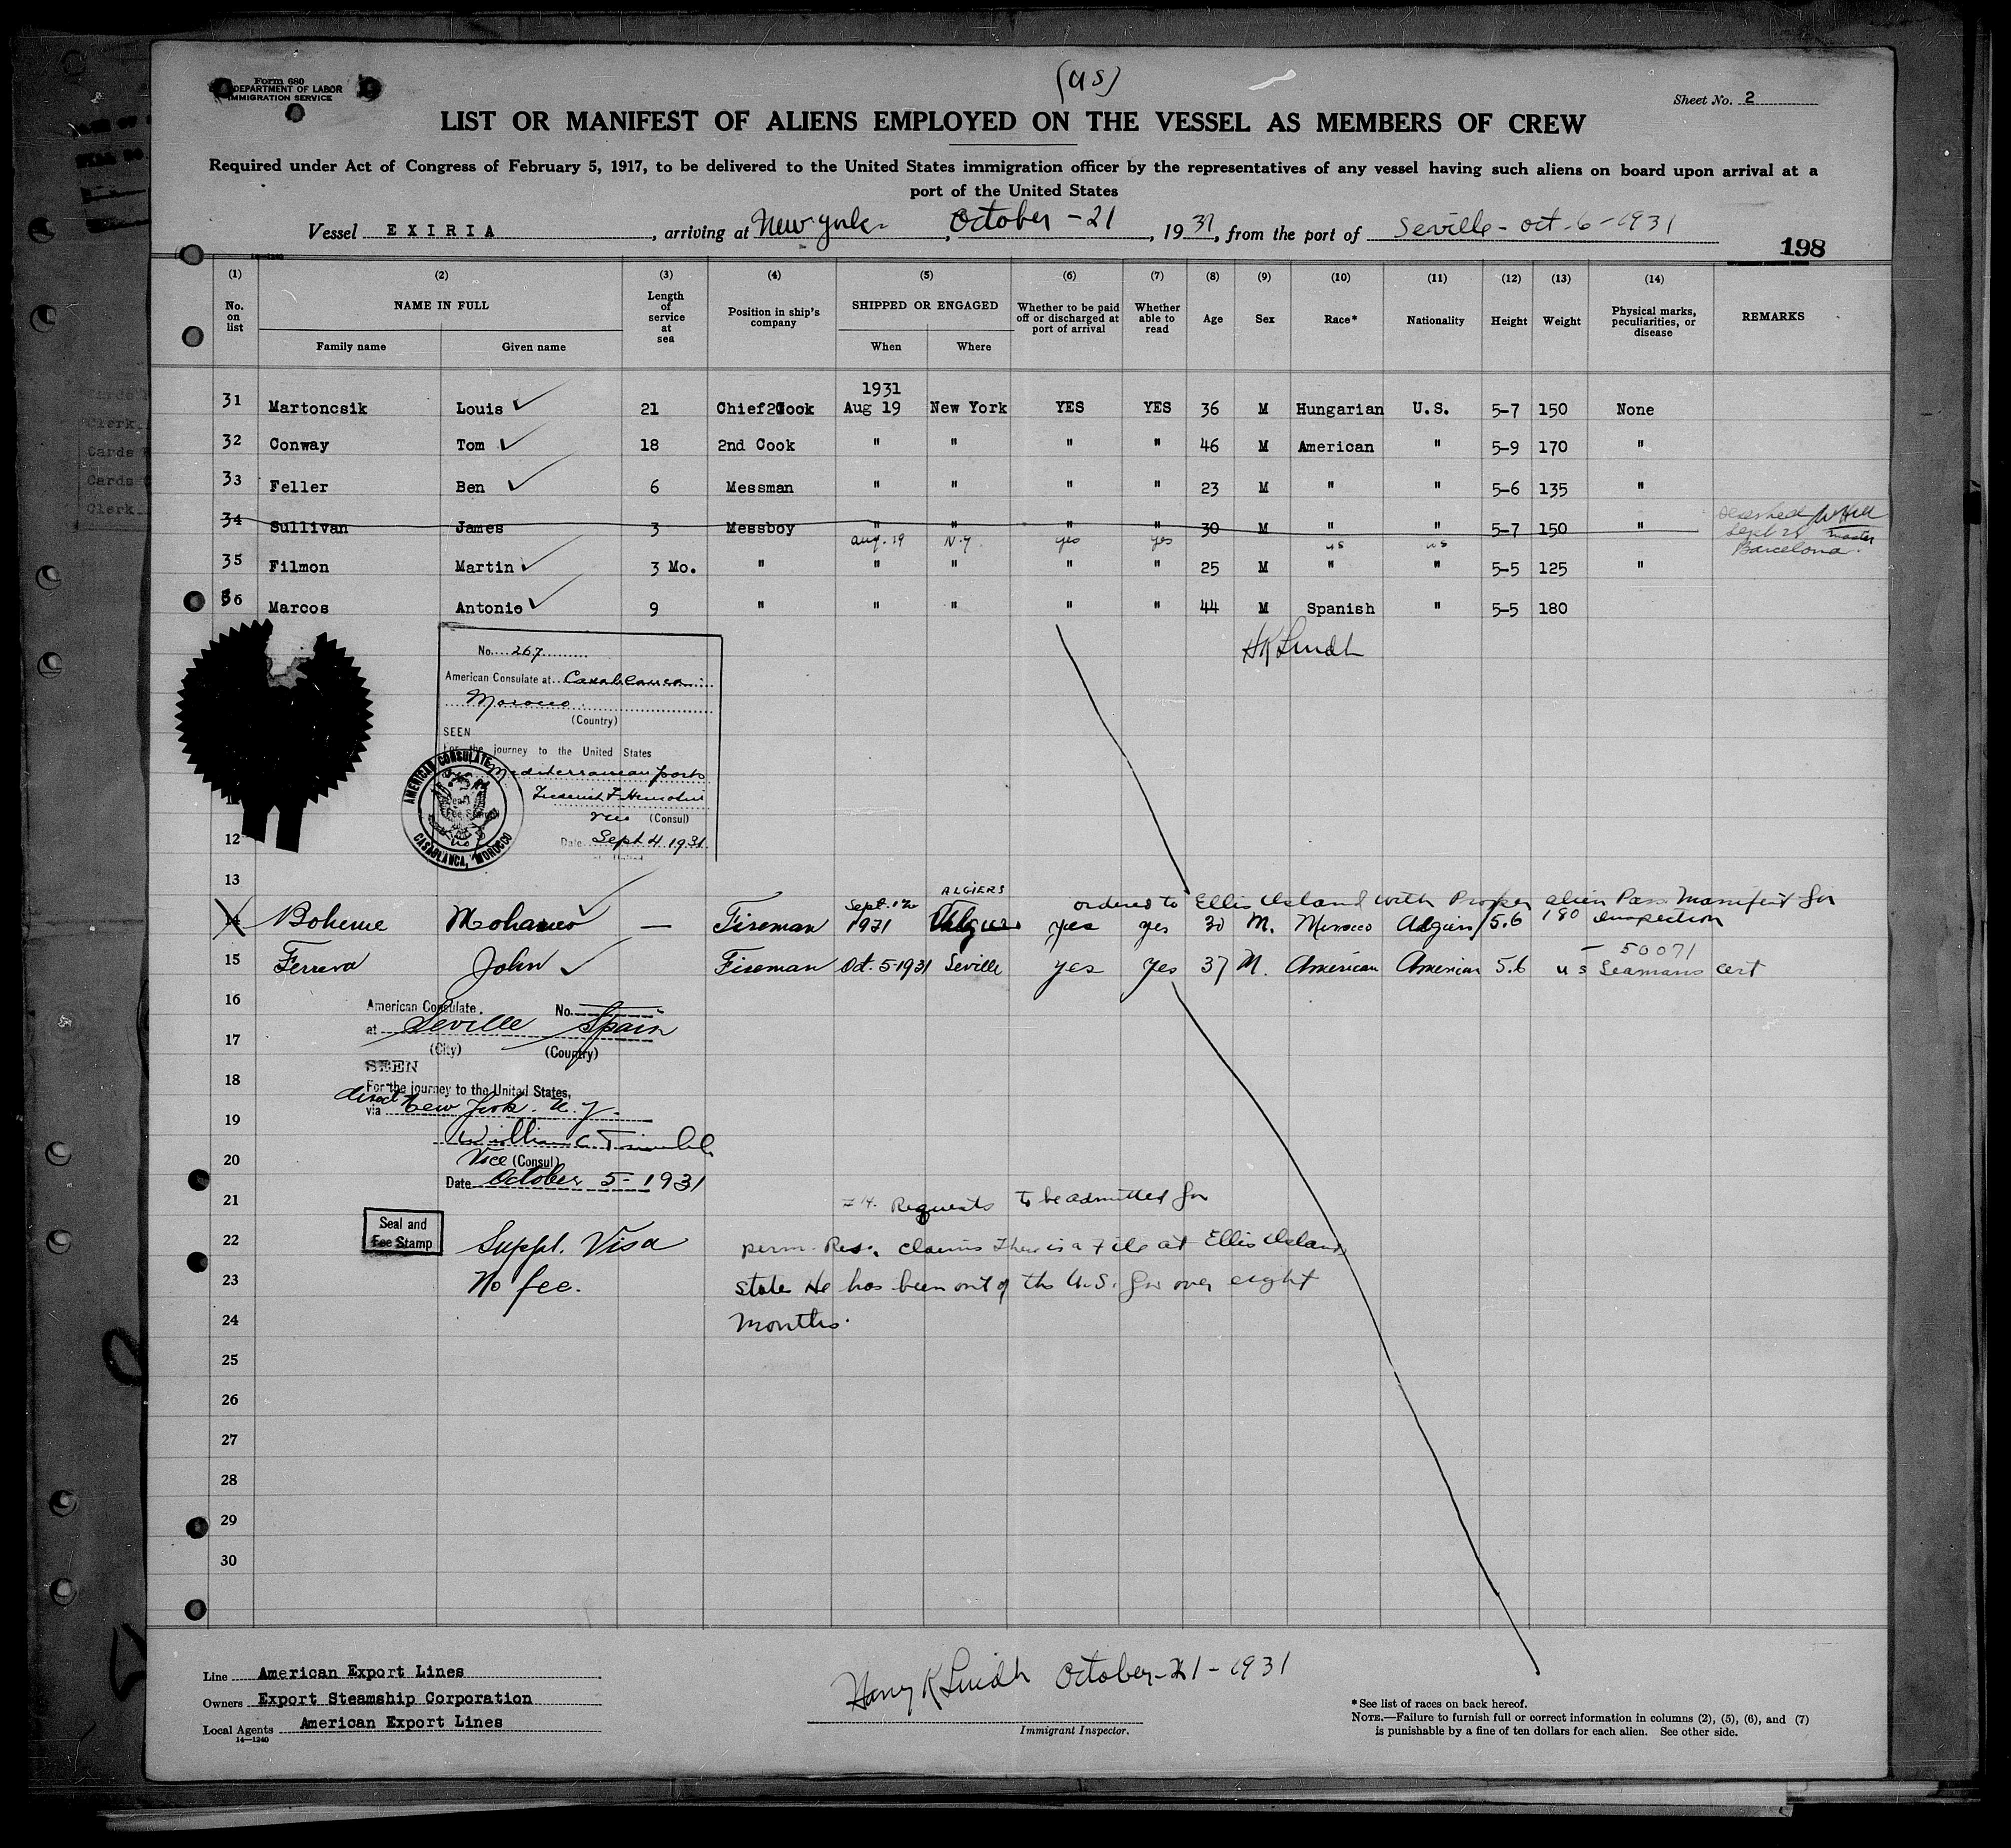 Form 680
DEPARTMENT OF LABOR
IMMIGRATION SERVICE
(US)
Sheet No. 2
LIST OR MANIFEST OF ALIENS EMPLOYED ON THE VESSEL AS MEMBERS OF CREW
Required under Act of Congress of February 5, 1917, to be delivered to the United States immigration officer by the representatives of any vessel having such aliens on board upon arrival at a
port of the United States
Vessel EXIRIA, arriving at New York, October - 21, 1931, from the port of Seville - Oct - 6 - 1931
198
14—1240
(1) (2) (3) (4) (5) (6) (7) (8) (9) (10) (11) (12) (13) (14)
No. on list NAME IN FULL Family name Given name Length of service at sea Position in ship's company SHIPPED OR ENGAGED When Where Whether to be paid off or discharged at port of arrival Whether able to read Age Sex Race* Nationality Height Weight Physical marks, peculiarities, or disease REMARKS
1931
31 Martoncsik Louis 21 Chief Cook Aug 19 New York YES YES 36 M Hungarian U.S. 5-7 150 None
32 Conway Tom 18 2nd Cook " " " " 46 M American " 5-9 170 "
33 Feller Ben 6 Messman " " " " 23 M " " 5-6 135 "
34 Sullivan James 3 Messboy " " " " 30 M " " 5-7 150 " Deserted Sept 25 Barcelona. W Hill master
aug. 19 N.Y. yes yes us us
35 Filmon Martin 3 Mo. " " " " " 25 M " " 5-5 125 "
36 Marcos Antonio 9 " " " " " 44 M Spanish " 5-5 180
HK Lindh
No. 267
American Consulate at Casablanca
Morocco
(Country)
SEEN
For the journey to the United States
Mediterranean ports
Vice (Consul)
Date Sept 4 1931
AMERICAN CONSULATE
CASABLANCA, MOROCCO
12
13
ordered to Ellis Island with Proper alien Pass Manifest for
inspection
ALGIERS
14 Boheme Mohamed — Fireman Sept. 12 1931 Algiers yes yes 30 M. Morocco Algiers 5.6 180
50071
15 Ferrera John Fireman Oct. 5-1931 Seville yes yes 37 M. American American 5.6 us Seamans cert
16
American Consulate No.
at Seville Spain
17
(City) (Country)
SEEN
18
For the journey to the United States,
direct
via New York. N.Y.
19
William C. Trimble
20
Vice (Consul)
Date October 5-1931
21
#14. Requests to be admitted for
22
Seal and
Fee Stamp
Suppl. Visa
perm. Res. claims there is a File at Ellis Island
23
No fee.
states He has been out of the U.S. for over eight
24
months.
25
26
27
28
29
30
Line American Export Lines
Owners Export Steamship Corporation
Local Agents American Export Lines
14—1240
Harry K Lindh October-21-1931
Immigrant Inspector.
*See list of races on back hereof.
NOTE.—Failure to furnish full or correct information in columns (2), (5), (6), and (7)
is punishable by a fine of ten dollars for each alien. See other side.